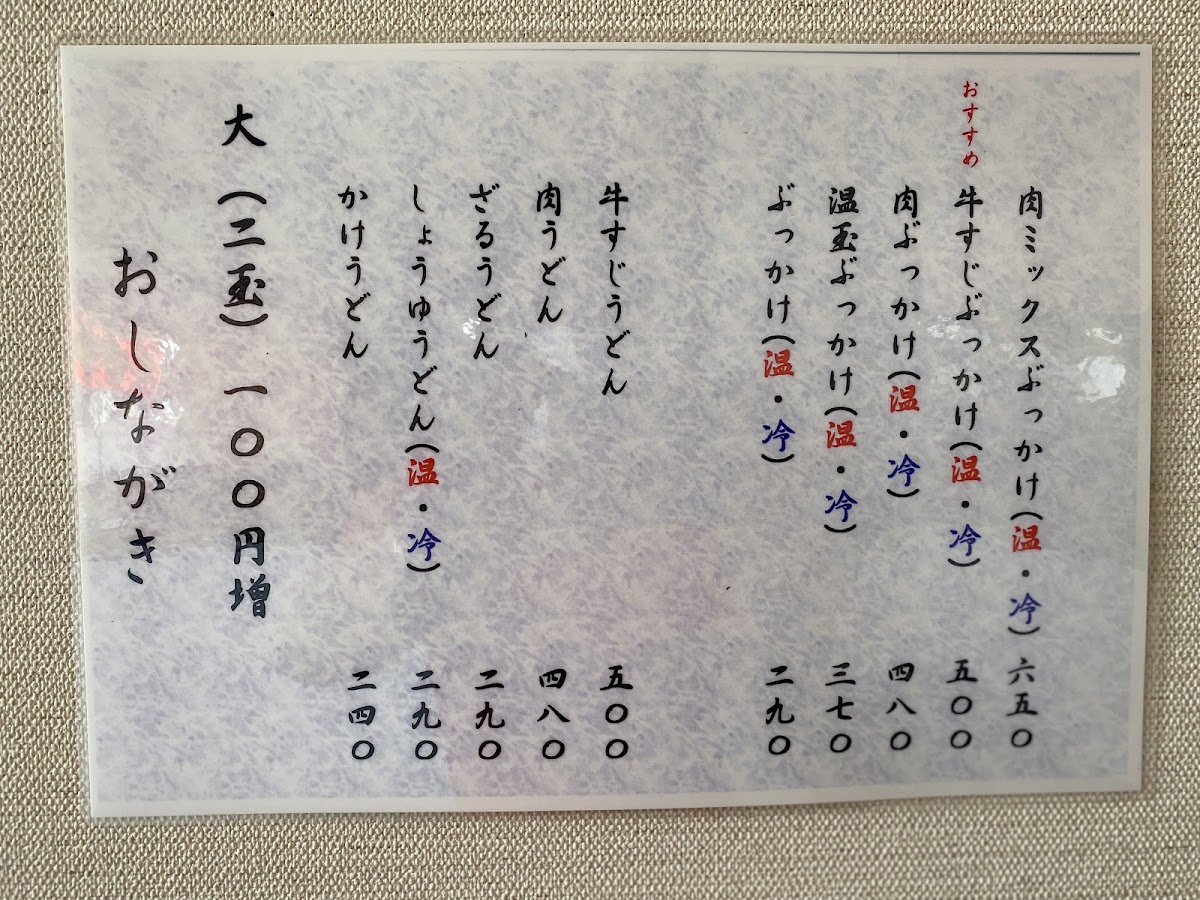 肉ミックスぶっかけ(温・冷) 六五〇
おすすめ 牛すじぶっかけ(温・冷) 五〇〇
肉ぶっかけ(温・冷) 四八〇
温玉ぶっかけ(温・冷) 三七〇
ぶっかけ(温・冷) 二九〇
牛すじうどん 五〇〇
肉うどん 四八〇
ざるうどん 二九〇
しょうゆうどん(温・冷) 二九〇
かけうどん 二四〇
大(二玉)一〇〇円増
おしながき